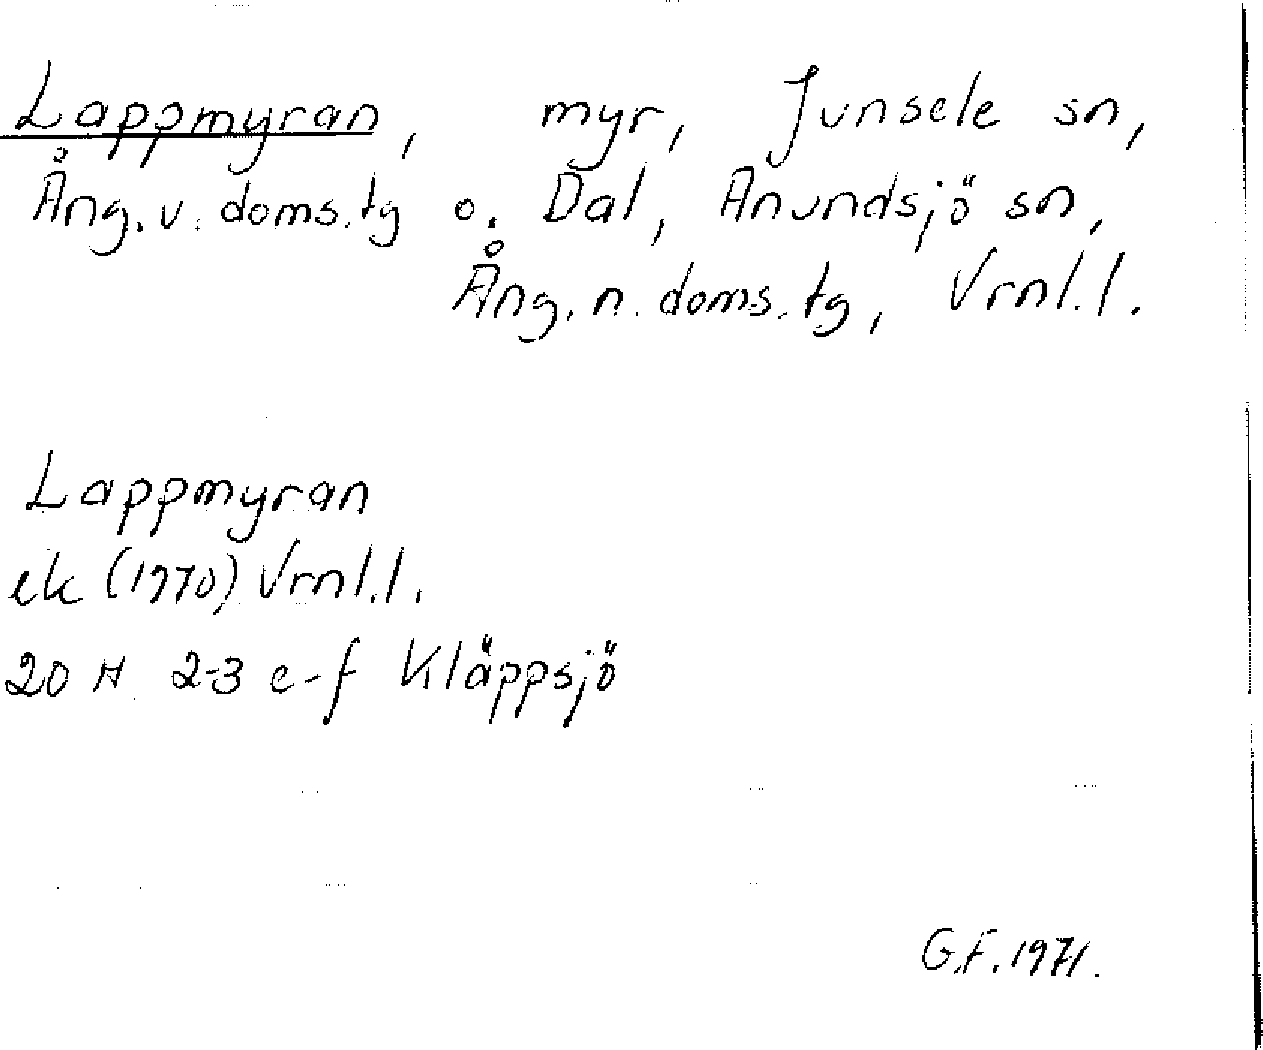 Lappmyran, myr, Junsele sn,
Ång. v. doms. tg o. Dal, Anundsjö sn,
Ång. n. doms. tg, Vrnl. l.
Lappmyran
ek (1970) Vrnl. l.
20 H 2-3 e-f Kläppsjö
G.F. 1971.